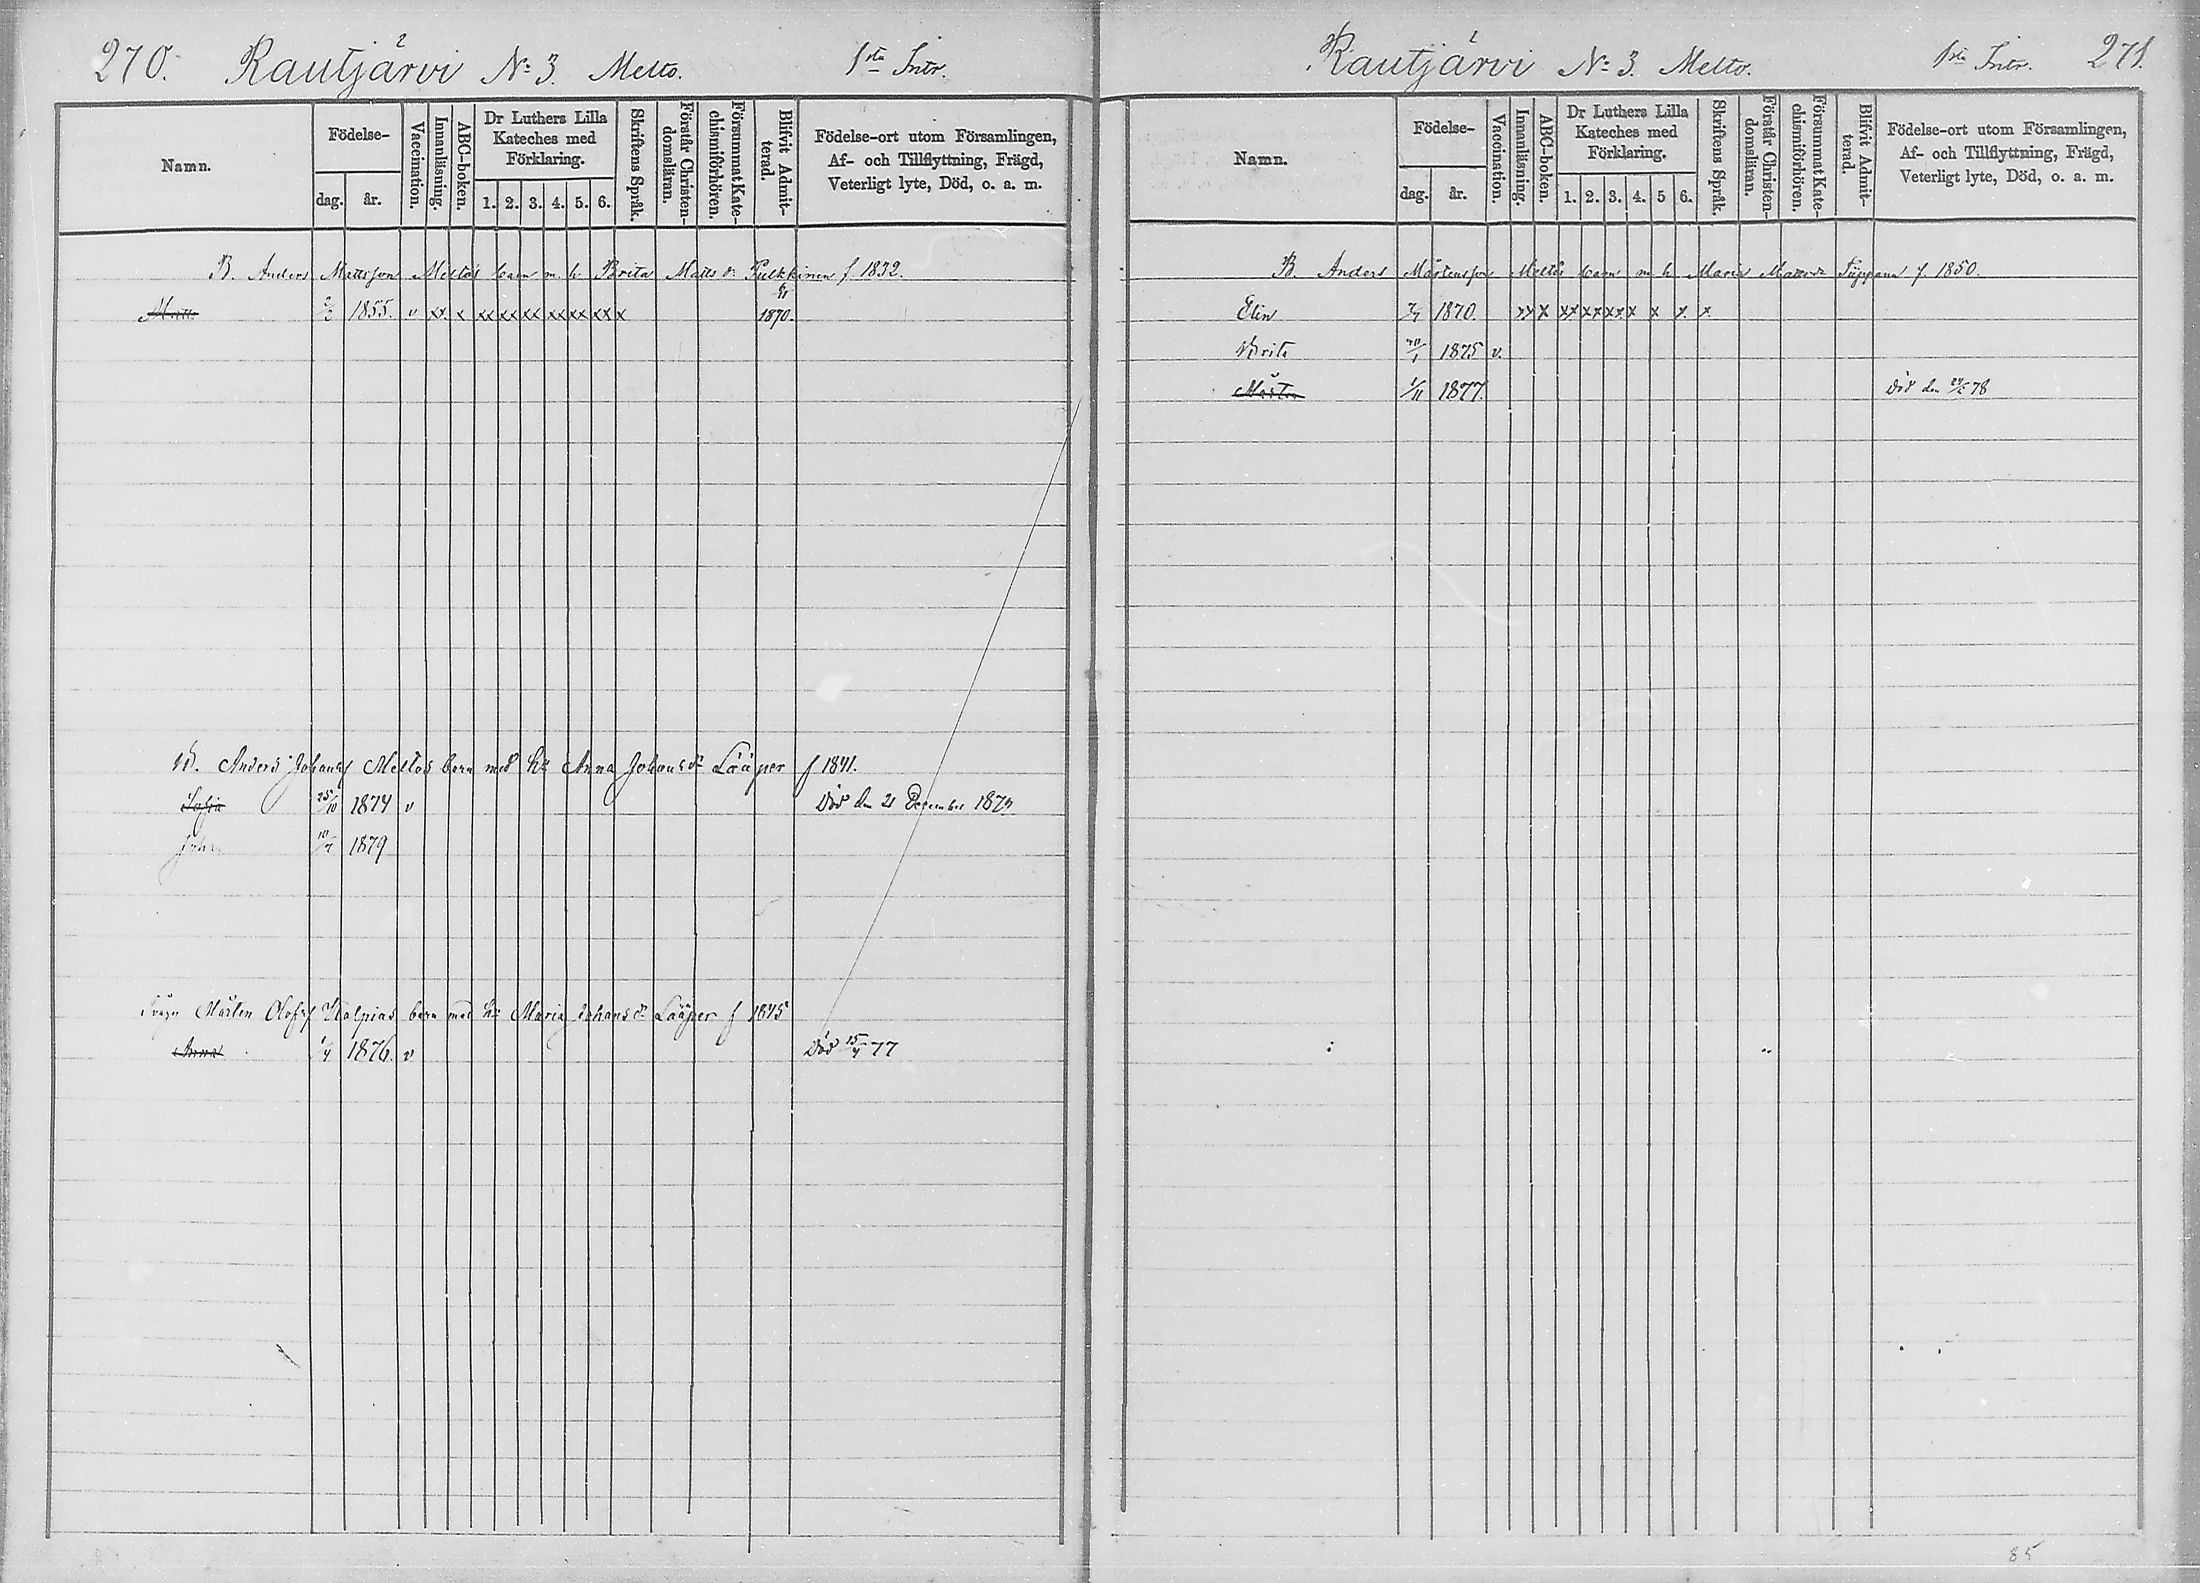 270. Rautjärvi № 3. Melto. 1sta Intr.
Namn.
Födelse-
dag.
år.
Vaccination.
Innanläsning.
ABC-boken.
Dr Luthers Lilla Kateches med Förklaring.
1. 2. 3. 4. 5. 6.
Skriftens Språk.
Förstår Christen-domsläran.
Försummat Kate-chismiförhören.
Blifvit Admit-terad.
Födelse-ort utom Församlingen, Af- och Tillflyttning, Frägd, Veterligt lyte, Död, o. a. m.
B. Anders Mattsson Meltos barn m. h. Brita Matts dr Pulkkinen f 1832.
Matts 1855. v xx x xx xx xx xx xx xx x 1870.
B. Anders Johansf Meltos barn med h: Anna Johans dr Lääper f 1841.
Sofia 25/10 1874 v Död den 21 December 187
Joh 1879
Måg Mårten Olofsf Kalpias barn med h: Maria Johans dr Lääper f 1845
Anna 1/4 1876. v Död 15/4 77
Rautjärvi № 3. Melto. 1sta Intr. 271.
Namn.
Födelse-
dag.
år.
Vaccination.
Innanläsning.
ABC-boken.
Dr Luthers Lilla Kateches med Förklaring.
1. 2. 3. 4. 5 6.
Skriftens Språk.
Förstår Christen-domsläran.
Försummat Kate-chismiförhören.
Blifvit Admit-terad.
Födelse-ort utom Församlingen, Af- och Tillflyttning, Frägd, Veterligt lyte, Död, o. a. m.
B. Anders Mårtensson Meltos barn m h Maria f 1850.
Elin 1870. xx x xx xx xx x x x x
Brita 1875 v.
Mårten 1/11 1877. Död den 78
85